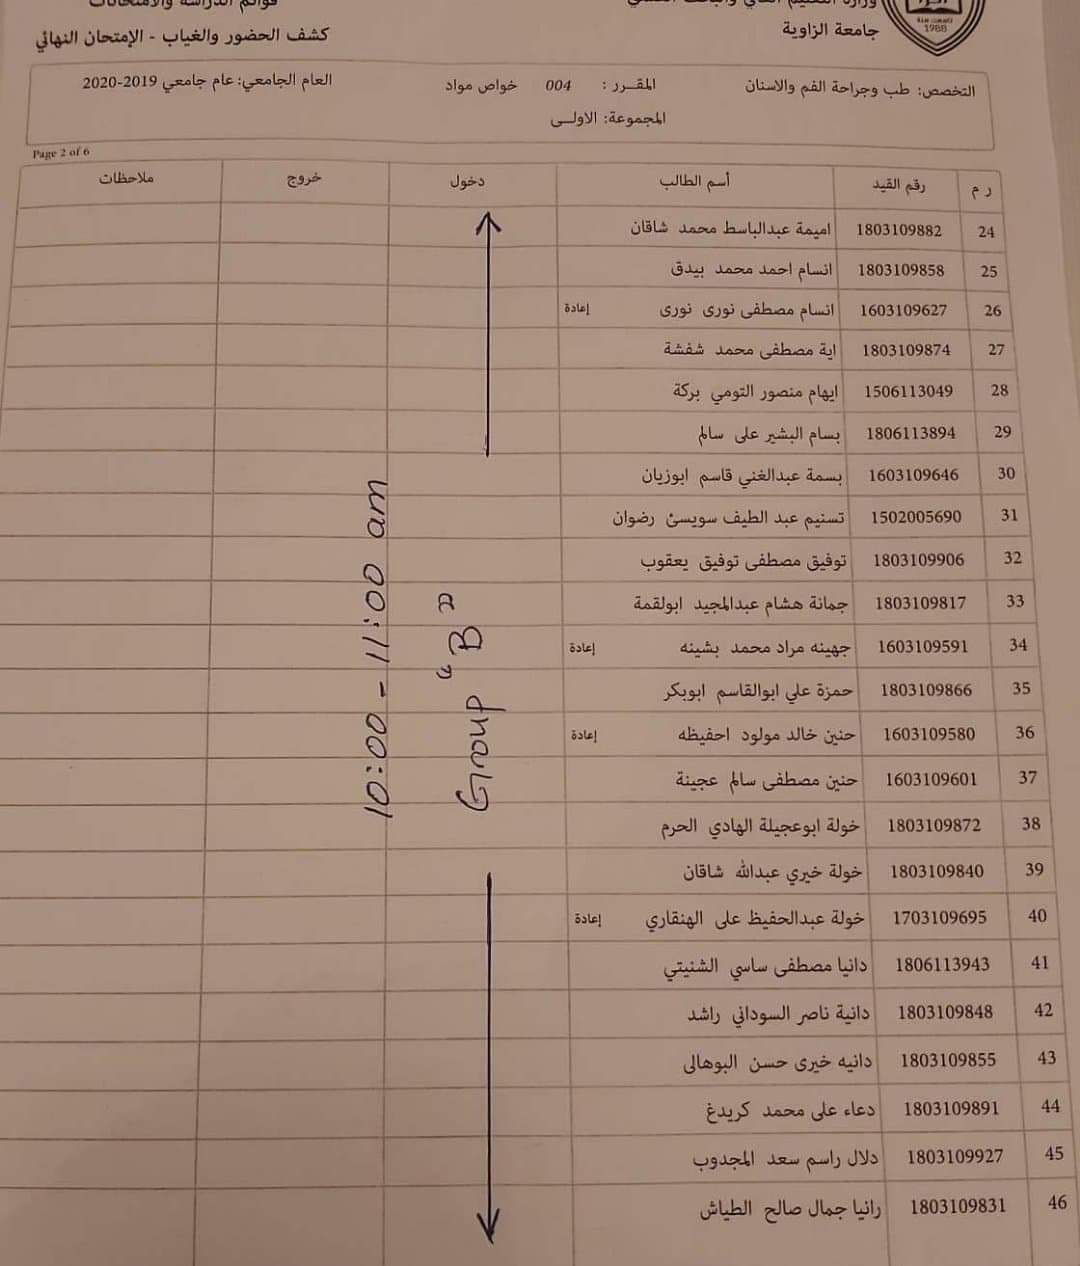 قوائم الدراسة والامتحانات
جامعة الزاوية
كشف الحضور والغياب - الإمتحان النهائي
1988
التخصص: طب وجراحة الفم والاسنان المقــرر : 004 خواص مواد العام الجامعي: عام جامعي 2019-2020
المجموعة: الاولــى
Page 2 of 6
ر م رقم القيد أسم الطالب دخول خروج ملاحظات
24 1803109882 اميمة عبدالباسط محمد شاقان
25 1803109858 انسام احمد محمد بيدق
26 1603109627 انسام مصطفى نورى نورى إعادة
27 1803109874 اية مصطفى محمد شفشة
28 1506113049 ايهام منصور التومي بركة
29 1806113894 بسام البشير على سالم
30 1603109646 بسمة عبدالغني قاسم ابوزيان
31 1502005690 تسنيم عبد الطيف سويسئ رضوان
32 1803109906 توفيق مصطفى توفيق يعقوب
33 1803109817 جمانة هشام عبدالمجيد ابولقمة
34 1603109591 جهينه مراد محمد بشينه إعادة
35 1803109866 حمزة علي ابوالقاسم ابوبكر
36 1603109580 حنين خالد مولود احفيظه إعادة
37 1603109601 حنين مصطفى سالم عجينة
38 1803109872 خولة ابوعجيلة الهادي الحرم
39 1803109840 خولة خيري عبدالله شاقان
40 1703109695 خولة عبدالحفيظ على الهنقاري إعادة
41 1806113943 دانيا مصطفى ساسي الشنيتي
42 1803109848 دانية ناصر السوداني راشد
43 1803109855 دانيه خيرى حسن البوهالى
44 1803109891 دعاء على محمد كريدغ
45 1803109927 دلال راسم سعد المجدوب
46 1803109831 رانيا جمال صالح الطياش
10:00 - 11:00 am
Group "B"